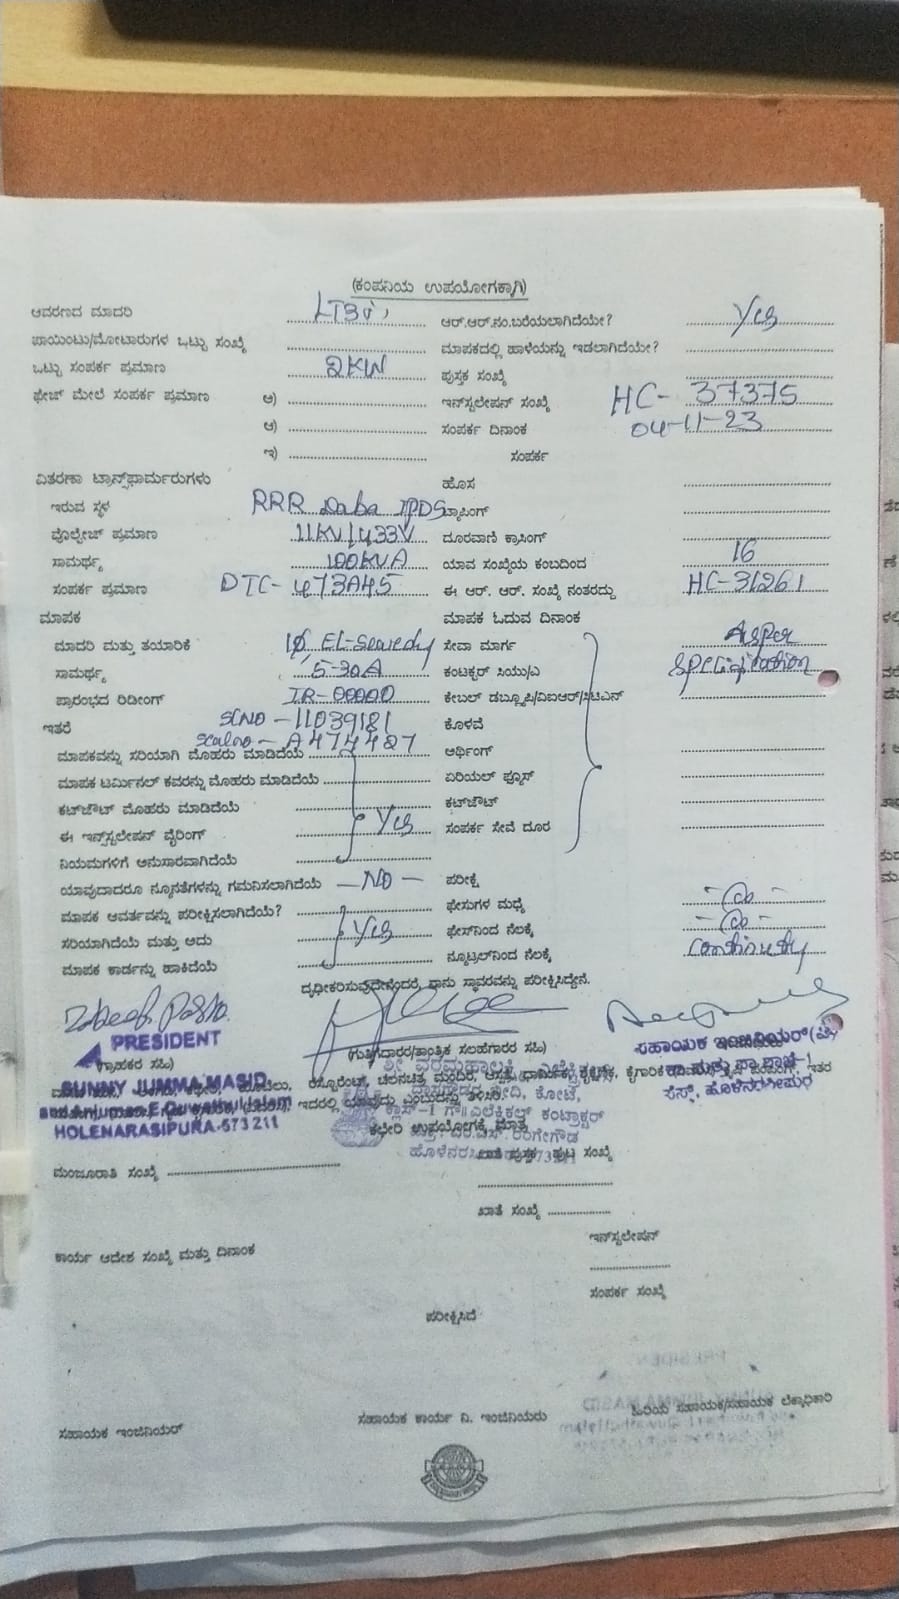 (ಕಂಪನಿಯ ಉಪಯೋಗಕ್ಕಾಗಿ)
ಆವರಣದ ಮಾದರಿ LT3 ಆರ್.ಆರ್.ನಂ.ಬರೆಯಲಾಗಿದೆಯೇ? Yes
ಪಾಯಿಂಟು/ಮೋಟಾರುಗಳ ಒಟ್ಟು ಸಂಖ್ಯೆ ಮಾಪಕದಲ್ಲಿ ಹಾಳೆಯನ್ನು ಇಡಲಾಗಿದೆಯೇ?
ಒಟ್ಟು ಸಂಪರ್ಕ ಪ್ರಮಾಣ 2KW ಪುಸ್ತಕ ಸಂಖ್ಯೆ
ಫೇಜ್ ಮೇಲೆ ಸಂಪರ್ಕ ಪ್ರಮಾಣ ಅ) ಇನ್‌ಸ್ಟಲೇಷನ್ ಸಂಖ್ಯೆ HC- 37375
ಆ) ಸಂಪರ್ಕ ದಿನಾಂಕ 04-11-23
ಇ) ಸಂಪರ್ಕ
ವಿತರಣಾ ಟ್ರಾನ್ಸ್‌ಫಾರ್ಮರುಗಳು ಹೊಸ
ಇರುವ ಸ್ಥಳ RRR Daba IPDS ಟ್ಯಾಪಿಂಗ್
ವೊಲ್ಟೇಜ್ ಪ್ರಮಾಣ 11KV/433V ದೂರವಾಣಿ ಕ್ರಾಸಿಂಗ್
ಸಾಮರ್ಥ್ಯ 100KVA ಯಾವ ಸಂಖ್ಯೆಯ ಕಂಬದಿಂದ 16
ಸಂಪರ್ಕ ಪ್ರಮಾಣ DTC- 473A45 ಈ ಆರ್. ಆರ್. ಸಂಖ್ಯೆ ನಂತರದ್ದು
ಮಾಪಕ ಮಾಪಕ ಓದುವ ದಿನಾಂಕ
ಮಾದರಿ ಮತ್ತು ತಯಾರಿಕೆ 1Ø ಸೇವಾ ಮಾರ್ಗ Asper
ಸಾಮರ್ಥ್ಯ 5-30A ಕಂಟಕ್ಟರ್ ಸಿಯು/ಎ Specification
ಪ್ರಾರಂಭದ ರಿಡೀಂಗ್ IR-00000 ಕೇಬಲ್ ಡಬ್ಲ್ಯೂಪಿ/ವಿಐಆರ್/ಸಿಟಿಎನ್
ಇತರೆ SLNO -11039181 ಕೊಳವೆ
Sealno - A474427
ಮಾಪಕವನ್ನು ಸರಿಯಾಗಿ ಮೊಹರು ಮಾಡಿದೆಯೆ ಆರ್ಥಿಂಗ್
ಮಾಪಕ ಟರ್ಮಿನಲ್ ಕವರನ್ನು ಮೊಹರು ಮಾಡಿದೆಯೆ ಏರಿಯಲ್ ಫ್ಯೂಸ್
ಕಟ್‌ಜೌಟ್ ಮೊಹರು ಮಾಡಿದೆಯೆ ಕಟ್‌ಜೌಟ್
ಈ ಇನ್‌ಸ್ಟಲೇಷನ್ ವೈರಿಂಗ್ Yes ಸಂಪರ್ಕ ಸೇವೆ ದೂರ
ನಿಯಮಗಳಿಗೆ ಅನುಸಾರವಾಗಿದೆಯೆ
ಯಾವುದಾದರೂ ನ್ಯೂನತೆಗಳನ್ನು ಗಮನಿಸಲಾಗಿದೆಯೆ -NO- ಪರೀಕ್ಷೆ
ಮಾಪಕ ಆವರ್ತವನ್ನು ಪರೀಕ್ಷಿಸಲಾಗಿದೆಯೆ? ಫೇಸುಗಳ ಮಧ್ಯೆ
ಸರಿಯಾಗಿದೆಯೆ ಮತ್ತು ಅದು Yes ಫೇಸ್‌ನಿಂದ ನೆಲಕ್ಕೆ
ಮಾಪಕ ಕಾರ್ಡನ್ನು ಹಾಕಿದೆಯೆ ನ್ಯೂಟ್ರಲ್‌ನಿಂದ ನೆಲಕ್ಕೆ Continuty
ದೃಢೀಕರಿಸುವುದೇನೆಂದರೆ, ಧಾನು ಸ್ಥಾವರವನ್ನು ಪರೀಕ್ಷಿಸಿದ್ದೇನೆ.
PRESIDENT
(ಗ್ರಾಹಕರ ಸಹಿ) (ಗುತ್ತಿಗೆದಾರರ/ತಾಂತ್ರಿಕ ಸಲಹೆಗಾರರ ಸಹಿ) ಸಹಾಯಕ ಇಂಜಿನಿಯರ್
SUNNY JUMMA MASJID
and Anjuman-E-Quwathul Islam
HOLENARASIPURA-573211
ಕಛೇರಿ ಉಪಯೋಗಕ್ಕೆ ಮಾತ್ರ
ಮಂಜೂರಾತಿ ಸಂಖ್ಯೆ
ಖಾತೆ ಸಂಖ್ಯೆ
ಇನ್‌ಸ್ಟಲೇಷನ್
ಕಾರ್ಯ ಆದೇಶ ಸಂಖ್ಯೆ ಮತ್ತು ದಿನಾಂಕ
ಸಂಪರ್ಕ ಸಂಖ್ಯೆ
ಪರೀಕ್ಷಿಸಿದೆ
ಸಹಾಯಕ ಇಂಜಿನಿಯರ್ ಸಹಾಯಕ ಕಾರ್ಯ ನಿ. ಇಂಜಿನಿಯರು ಹಿರಿಯ ಸಹಾಯಕ/ಸಹಾಯಕ ಲೆಕ್ಕಾಧಿಕಾರಿ